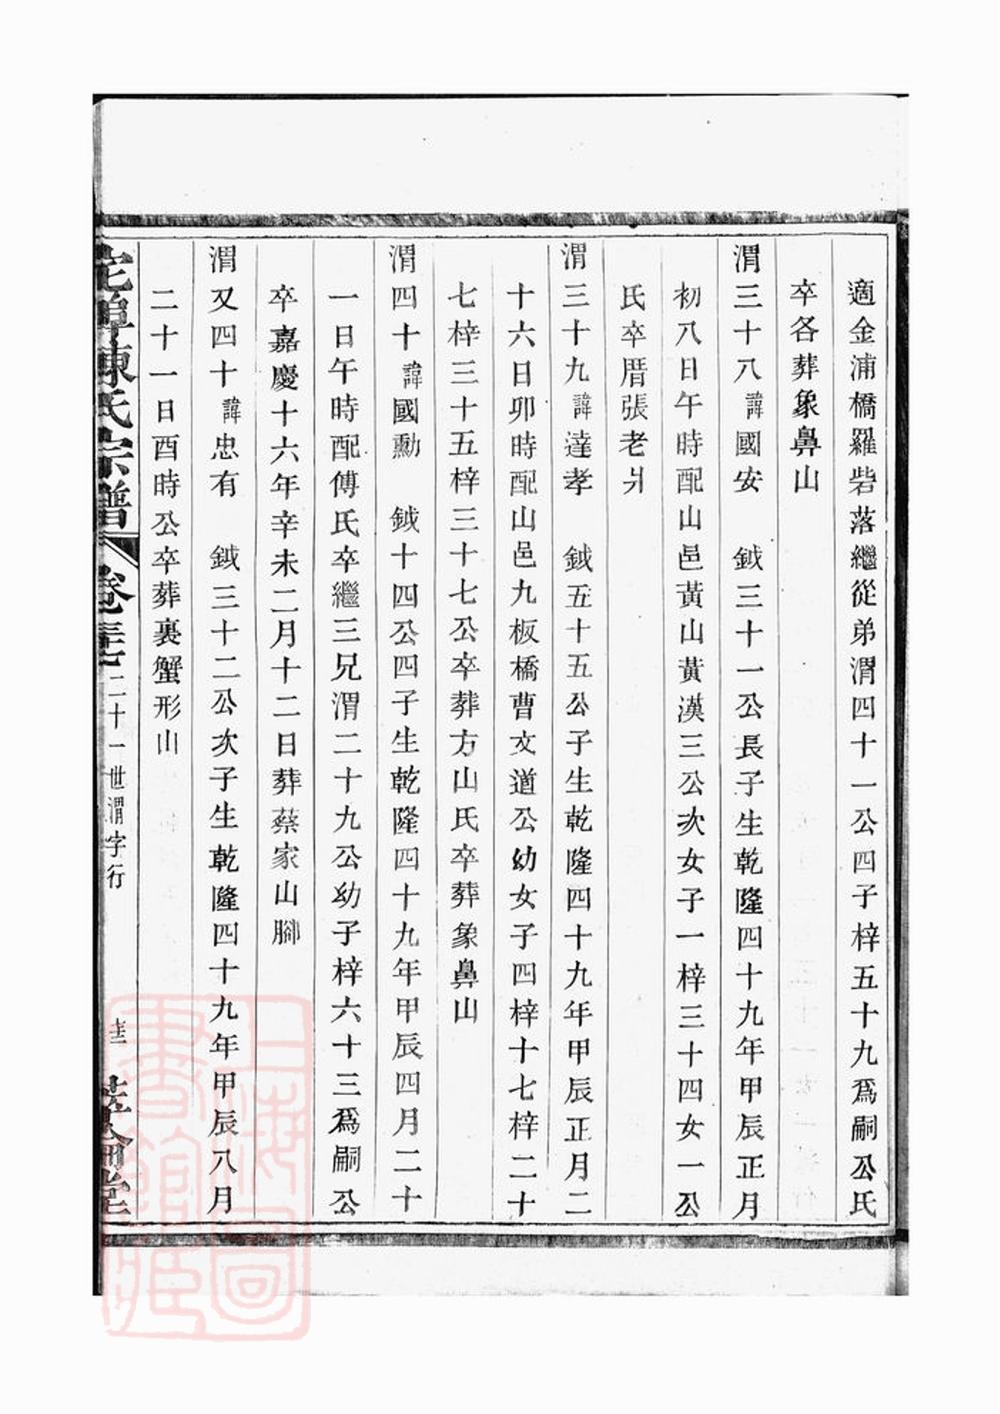 適金浦橋羅砦落繼從弟渭四十一公四子梓五十九為嗣公氏
卒各葬象鼻山
渭三十八諱國安　鉞三十一公長子生乾隆四十九年甲辰正月
初八日午時配山邑黃山黃漢三公次女子一梓三十四女一公
氏卒厝張老爿
渭三十九諱達孝　鉞五十五公子生乾隆四十九年甲辰正月二
十六日卯時配山邑九板橋曹文道公幼女子四梓十七梓二十
七梓三十五梓三十七公卒葬方山氏卒葬象鼻山
渭四十諱國勳　鉞十四公四子生乾隆四十九年甲辰四月二十
一日午時配傅氏卒繼三兄渭二十九公幼子梓六十三為嗣公
卒嘉慶十六年辛未二月十二日葬蔡家山腳
渭又四十諱忠有　鉞三十二公次子生乾隆四十九年甲辰八月
二十一日酉時公卒葬裏蟹形山
陳氏宗譜　卷　二十一世渭字行　堂
上海圖書館藏